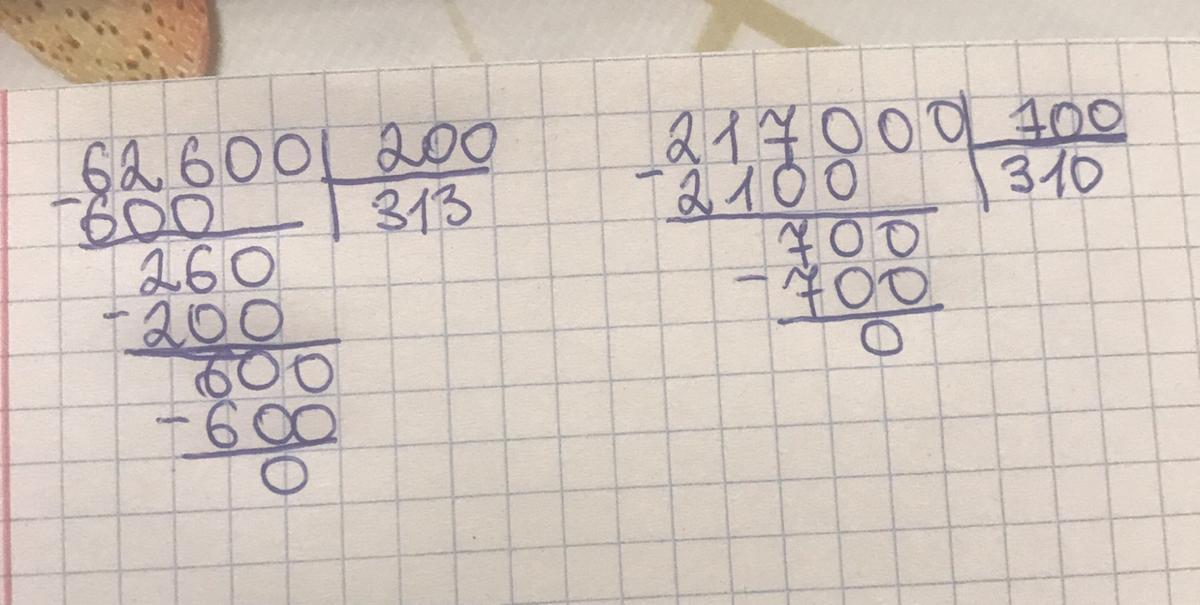 62600 200
-600 313
260
-200
600
-600
0
217000 700
-2100 310
700
-700
0